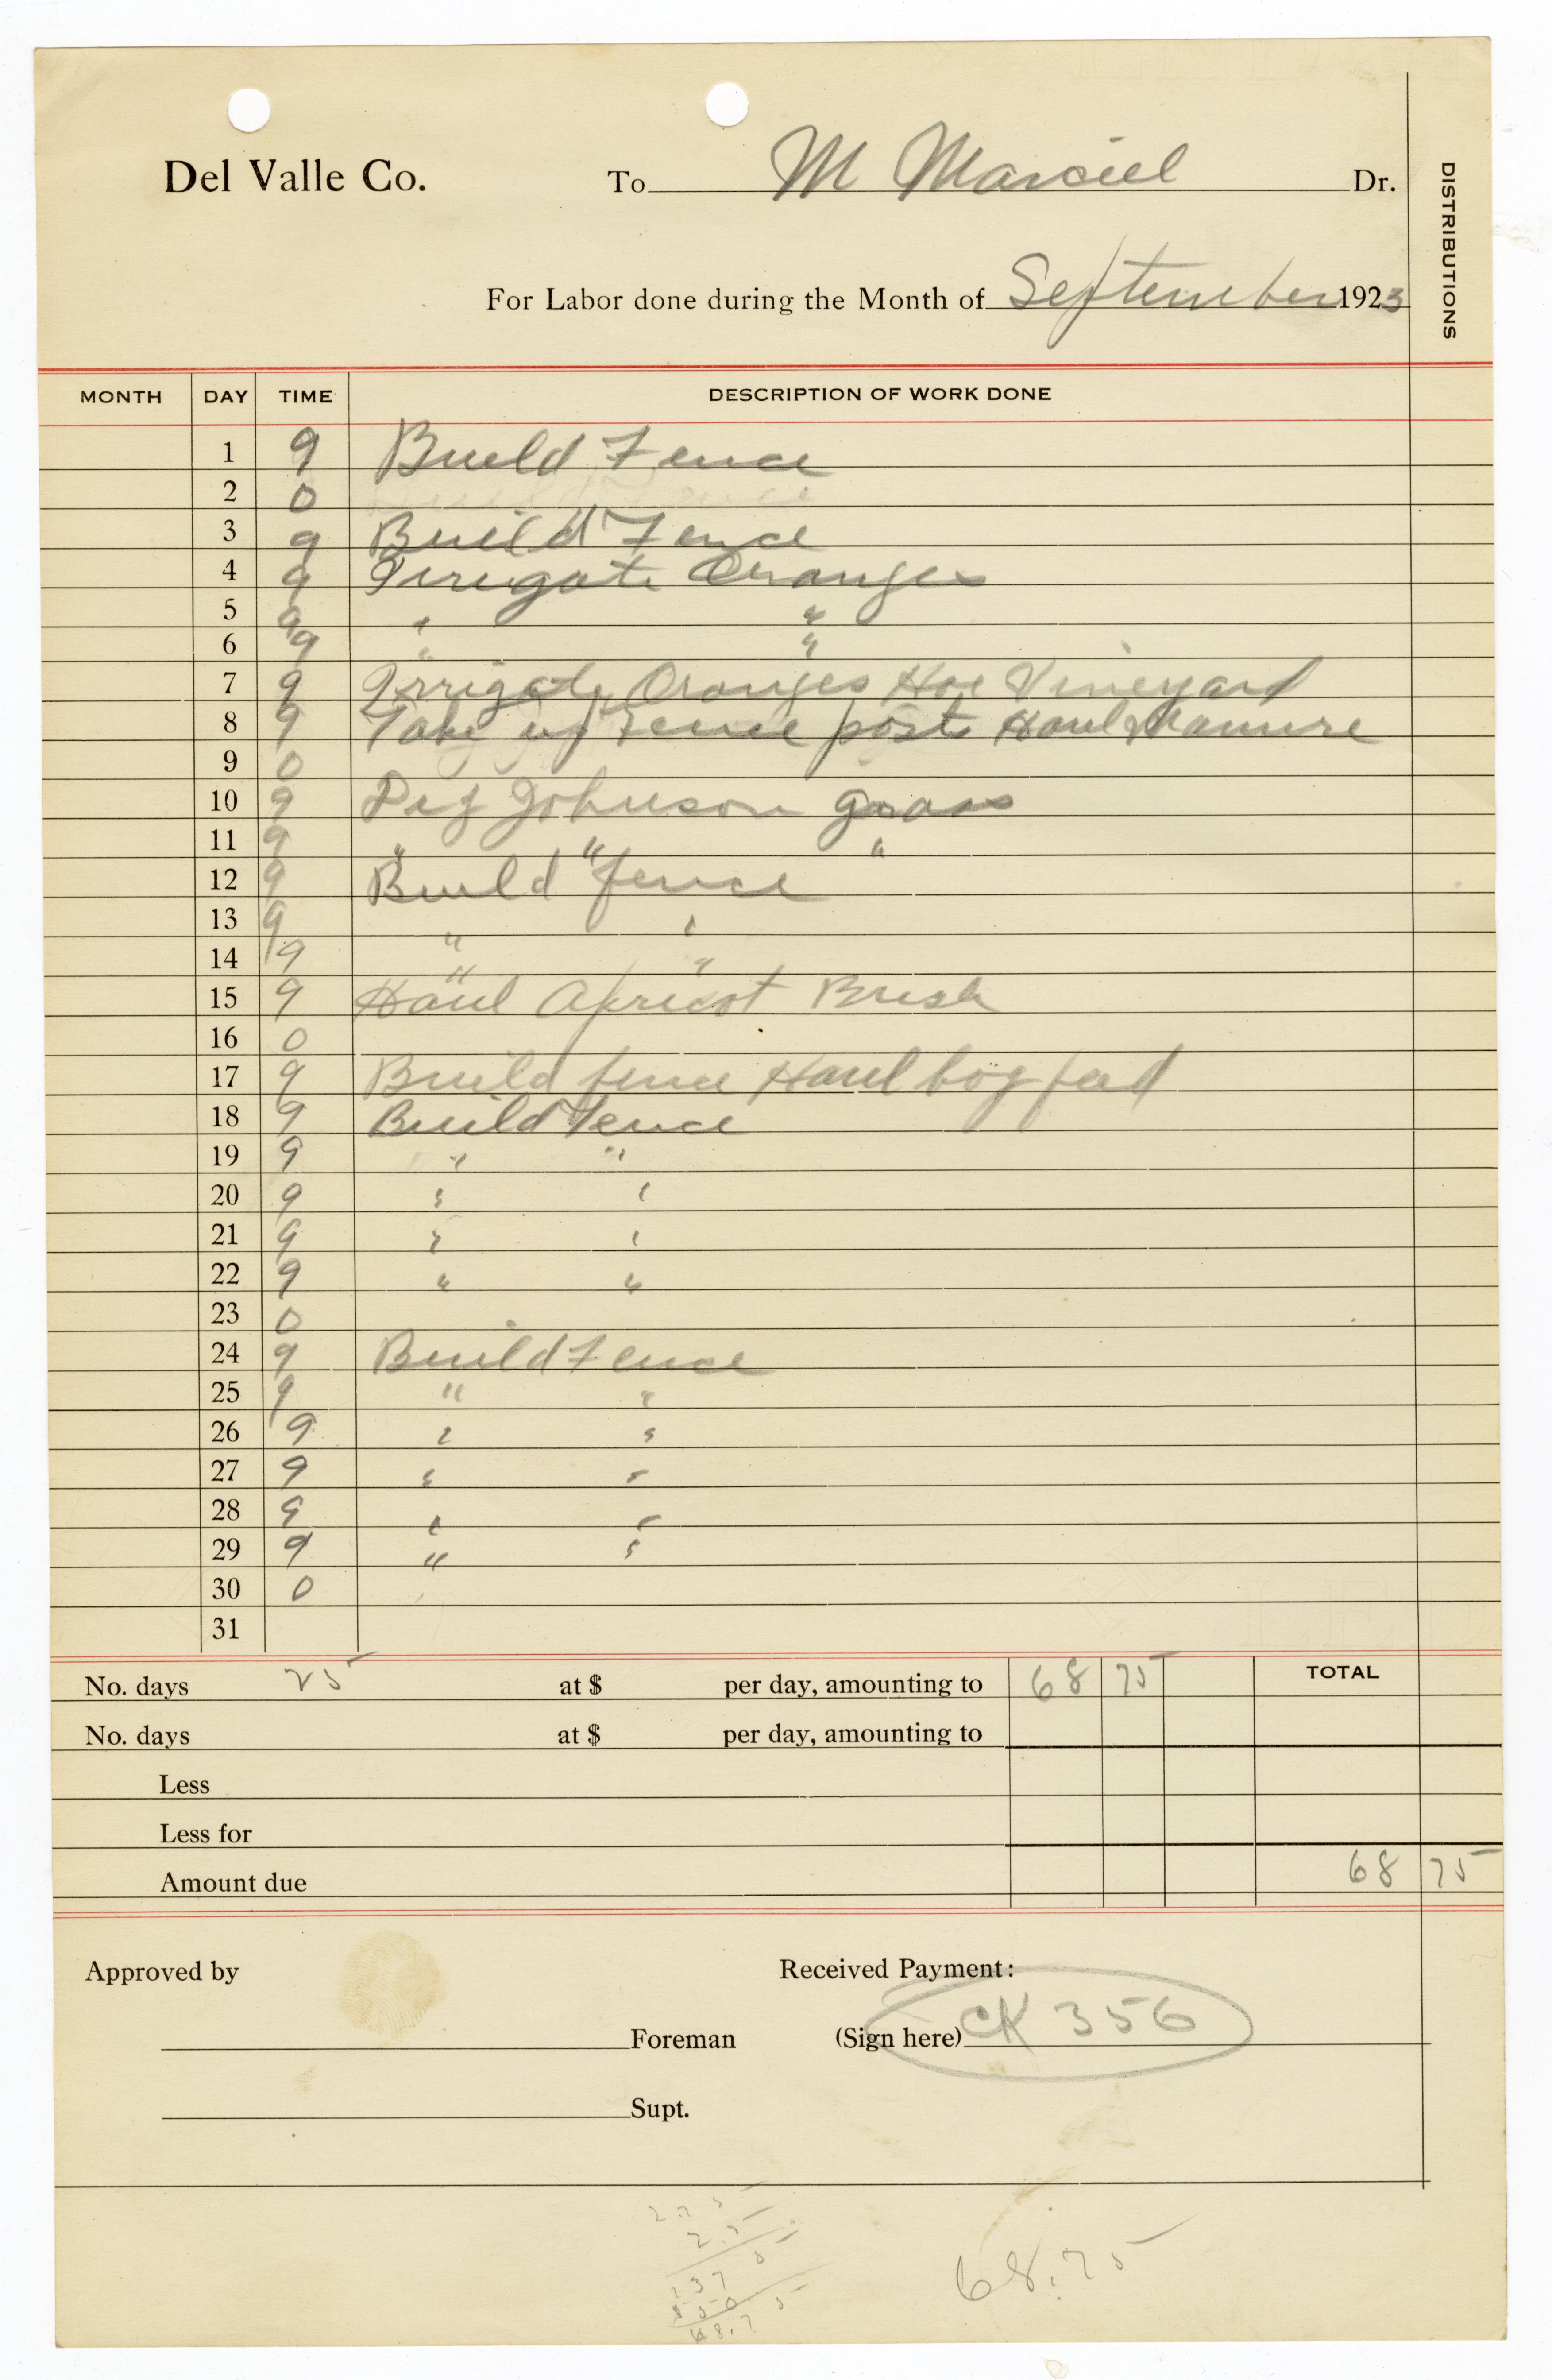 Del Valle Co. To M Marciel Dr.
DISTRIBUTIONS
For Labor done during the Month of September 1923
MONTH DAY TIME DESCRIPTION OF WORK DONE
1 9 Build Fence
2 0
3 9 Build Fence
4 9 Irrigate Oranges
5 9 " "
6 9 " "
7 9 Irrigate Oranges Hoe Vineyard
8 9 Take up Fence posts Haul Manure
9 0
10 9 Dig Johnson grass
11 9 " " "
12 9 Build fence
13 9 " "
14 9 " "
15 9 Haul Apricot Brush
16 0
17 9 Build fence Haul hog feed
18 9 Build Fence
19 9 " "
20 9 " "
21 9 " "
22 9 " "
23 0
24 9 Build Fence
25 9 " "
26 9 " "
27 9 " "
28 9 " "
29 9 " "
30 0
31
No. days 25 at $ per day, amounting to 68 75 TOTAL
No. days at $ per day, amounting to
Less
Less for
Amount due 68 75
Approved by Received Payment:
Foreman (Sign here) CK 356
Supt.
2.75
25
1375
550
68.75
68.75